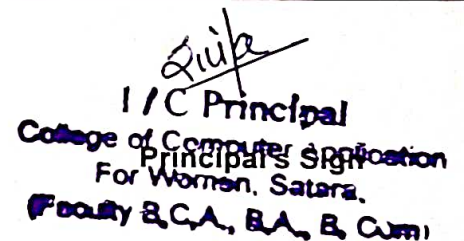 I/C Principal
College of Computer Application
Principal's Sign
For Women, Satara.
(Faculty B.C.A., B.A., B. Com)